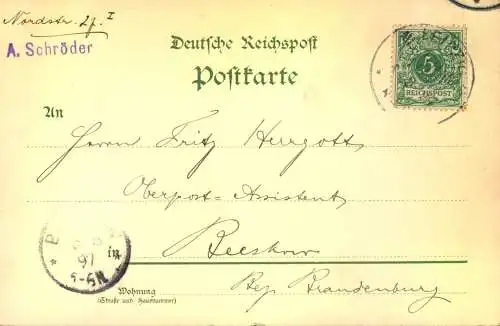 Nordstr. 27. I
A. Schröder
Deutsche Reichspost
Postkarte
5
REICHSPOST
An
Herrn Fritz Herrgott
Oberpost-Assistent
in
Beeskow
97
5-6N
Wohnung
(Straße und Hausnummer)
Bez. Brandenburg